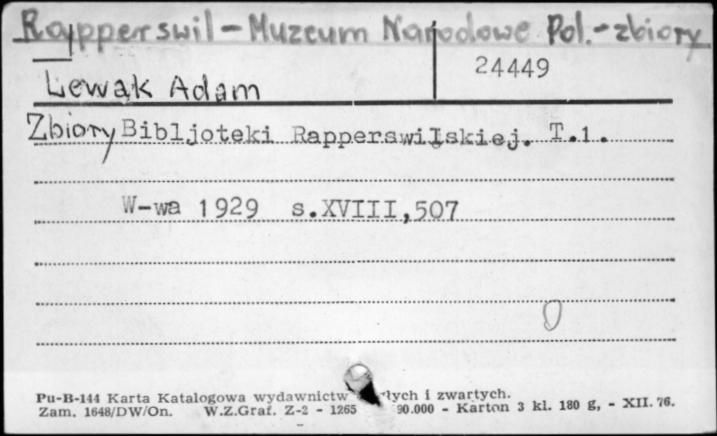 Rapperswil - Muzeum Narodowe Pol. - zbiory
24449
Lewak Adam
Zbiory Bibljoteki Rapperswilskiej. T.1.
W-wa 1929 s.XVIII,507
0
Pu-B-144 Karta Katalogowa wydawnictw i zwartych.
Zam. 1648/DW/On. W.Z.Graf. Z-2 - 1265 90.000 - Karton 3 kl. 180 g, - XII. 76.